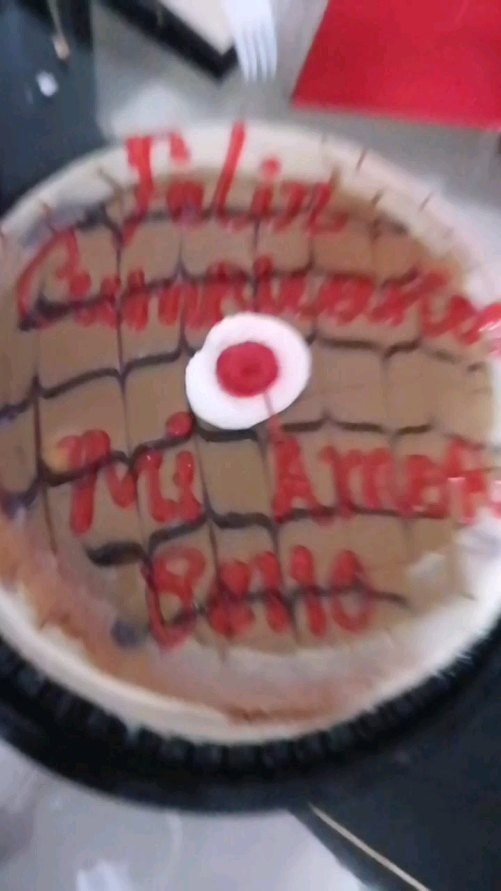 Feliz
Cumpleaños
Mi Amor
Bello